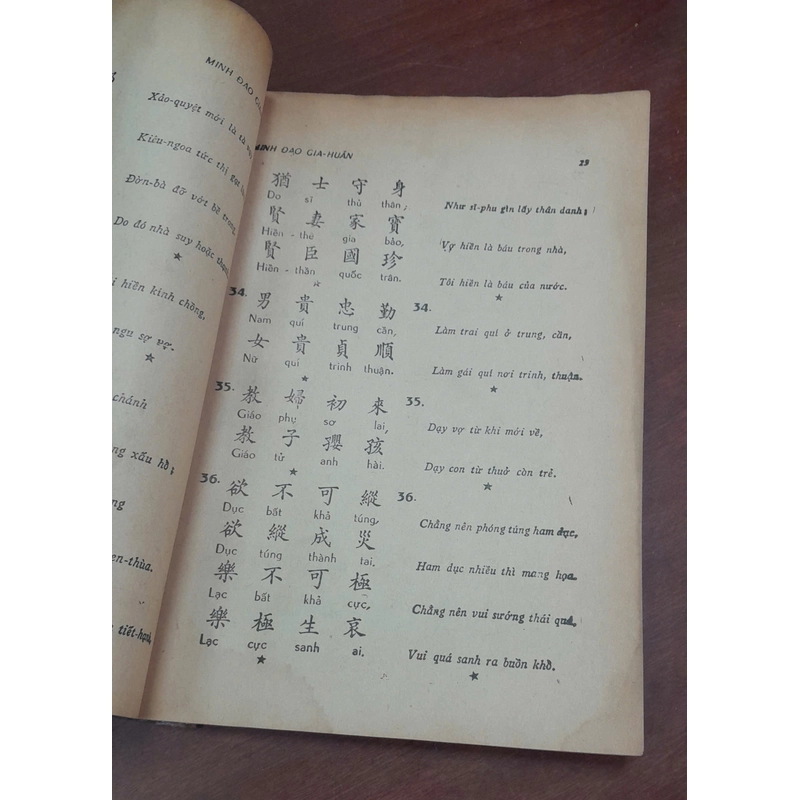 MINH ĐẠO
Xảo-quyệt mới là tà
Kiều-ngoa tức thị
Đờn-bà đỡ vớt bề trong.
Do đó nhà suy hoặc
★
hiền kính chồng,
ngu sợ vợ.
★
chánh
xấu hồ;
en-thùa.
MINH ĐẠO GIA-HUẤN
29
猶 士 守 身
Do sĩ thủ thân;
Như sĩ-phu gìn lấy thân danh;
賢 妻 家 寶
Hiền-thê gia bảo,
Vợ hiền là báu trong nhà,
賢 臣 國 珍
Hiền-thần quốc trân.
Tôi hiền là báu của nước.
★
34.
男 貴 忠 勤
Nam quí trung cần,
34.
Làm trai quí ở trung, cần,
女 貴 貞 順
Nữ quí trinh thuận.
Làm gái quí nơi trinh, thuận.
★
★
35.
教 婦 初 來
Giáo phụ sơ lai,
35.
Dạy vợ từ khi mới về,
教 子 孾 孩
Giáo tử anh hài.
Dạy con từ thuở còn trẻ.
★
★
36.
欲 不 可 縱
Dục bất khả túng,
36.
Chẳng nên phóng túng ham dục,
欲 縱 成 災
Dục túng thành tai.
Ham dục nhiều thì mang họa.
樂 不 可 極
Lạc bất khả cực,
Chẳng nên vui sướng thái quá,
樂 極 生 哀
Lạc cực sanh ai.
Vui quá sanh ra buồn khổ.
★
★